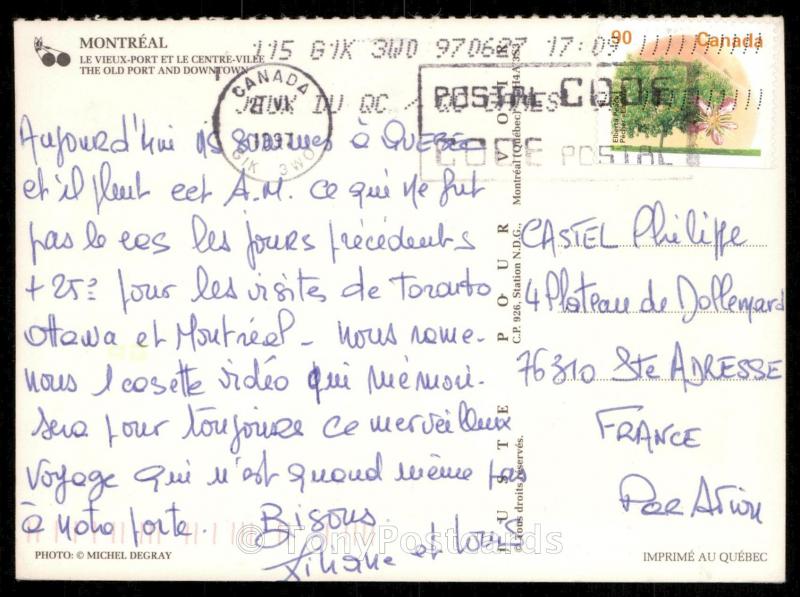 MONTRÉAL
LE VIEUX-PORT ET LE CENTRE-VILLE
THE OLD PORT AND DOWNTOWN
115 G1K 3W0 970627 17:09
JEUX DU QC /
CANADA
1997
G1K 3W0
POSTAL CODE
CODE POSTAL
90 Canada
Aujourd'hui ns sommes à QUEBEC
et il pleut cet A.M. ce qui ne fut
pas le cas les jours précédents
+ 25° pour les visites de Toronto
Ottawa et Montréal - nous rame-
nous 1 casette vidéo qui mémori-
sera pour toujours ce merveilleux
voyage qui n'est quand même pas
à notre porte. Bisous
Liliane et Louis
CASTEL Philippe
4 Plateau de Dollemard
76310 Ste ADRESSE
FRANCE
Par Avion
POUR VOIR
C.P. 926, Station N.D.G., Montréal (Québec) H4A 3S3
tous droits réservés.
PHOTO: © MICHEL DEGRAY
© TonyPostcards
IMPRIMÉ AU QUÉBEC